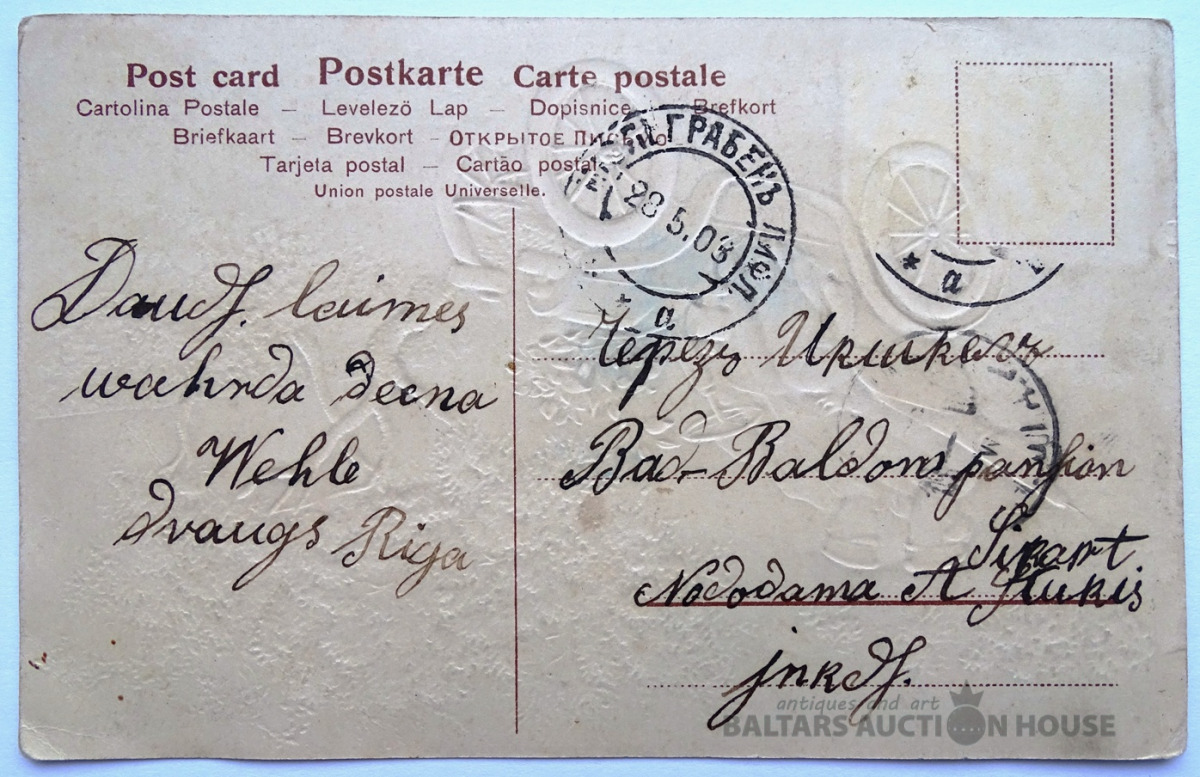 Post card Postkarte Carte postale
Cartolina Postale – Levelezö Lap – Dopisnice – Brefkort
Briefkaart – Brevkort – ОТКРЫТОЕ ПИСЬМО
Tarjeta postal – Cartão postale
Union postale Universelle.
ГРАБЕНЪ ЛИФЛ.
28.5.08
а
* а
Daudſ. laimes
wahrda deena
Wehle
draugs Riga
Черезъ Икскюль
Bad-Baldon panſion
Nododama A
jnkdſ.
antiques and art
BALTARS AUCTION HOUSE